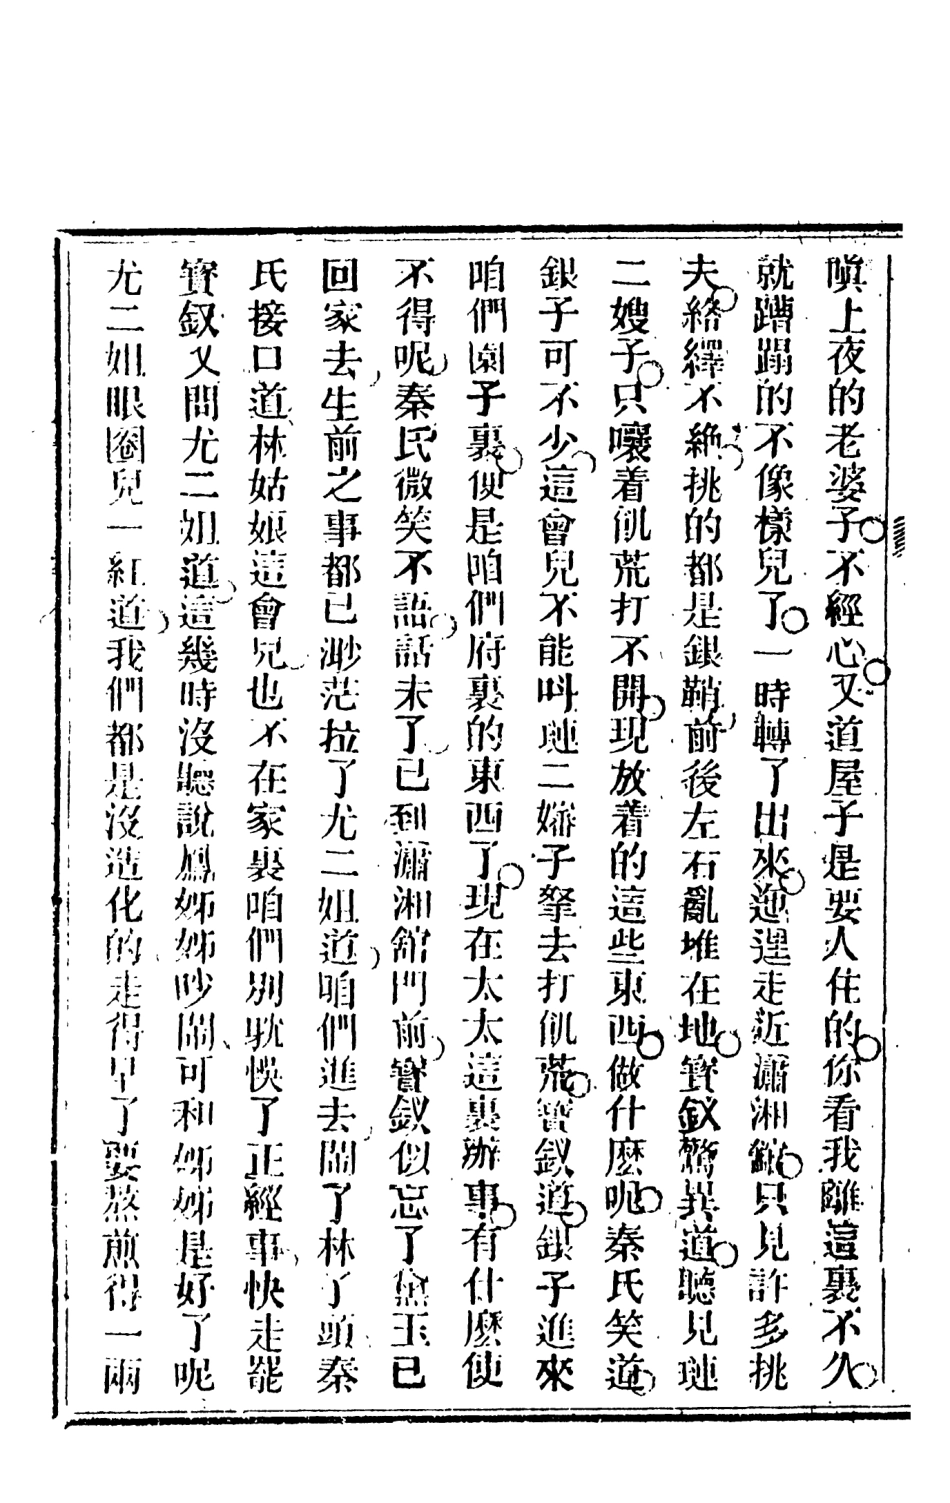 嗔上夜的老婆子不經心又道屋子是要人住的你看我離這裏不久
就蹧蹋的不像樣兒了一時轉了出來迤𨓦走近瀟湘館只見許多挑
夫絡繹不絶挑的都是銀鞘前後左右亂堆在地寳釵驚異道聽見璉
二嫂子只嚷着饥荒打不開現放着的這些東西做什麽呢秦氏笑道
銀子可不少這會兒不能呌璉二嬸子拏去打饥荒寳釵道銀子進來
咱們園子裏便是咱們府裏的東西了現在太太這裏辦事有什麽使
不得呢秦氏微笑不語話未了已到瀟湘舘門前寳釵似忘了黛玉已
回家去生前之事都已渺茫拉了尤二姐道咱們進去鬧了林丫頭秦
氏接口道林姑娘這會兒也不在家裏咱們別躭悞了正經事快走罷
寳釵又問尤二姐道這幾時沒聽說鳳姊姊吵鬧可和姊姊是好了呢
尤二姐眼圈兒一紅道我們都是沒造化的走得早了要熬煎得一兩